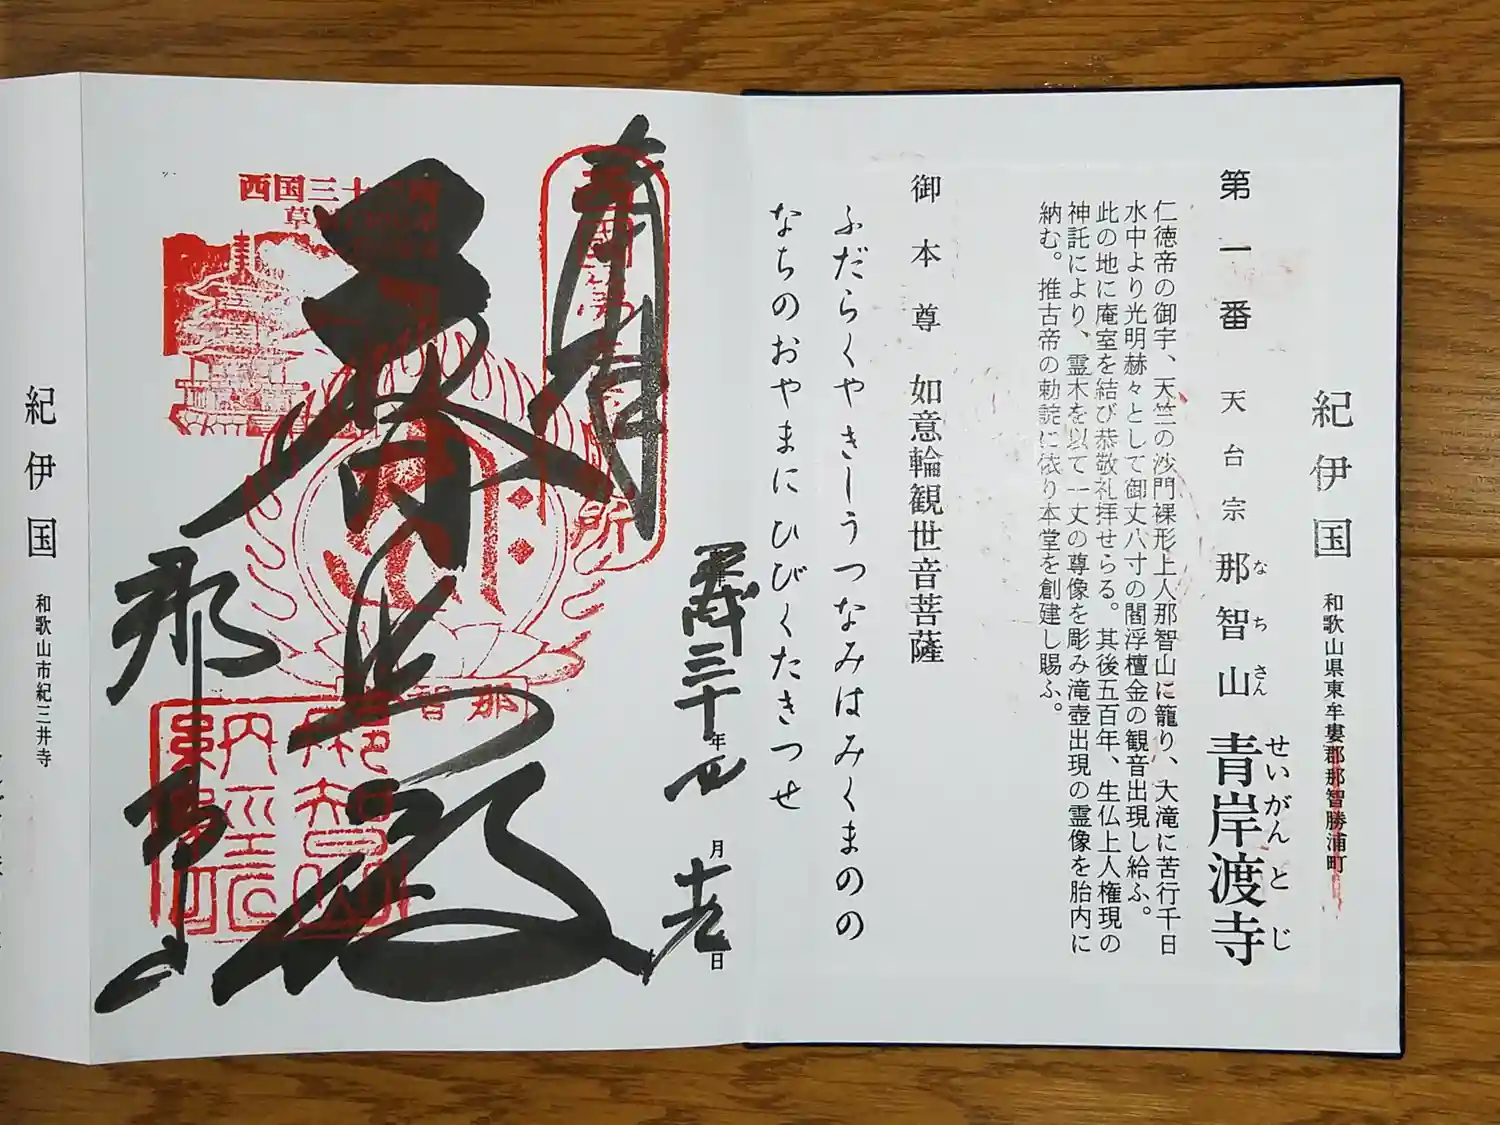 紀伊国 和歌山県東牟婁郡那智勝浦町
第一番 天台宗 那智山 青岸渡寺
なちさん せいがんとじ
仁徳帝の御宇、天竺の沙門裸形上人那智山に籠り、大滝に苦行千日
水中より光明赫々として御丈八寸の閻浮檀金の観音出現し給ふ。
此の地に庵室を結び恭敬礼拝せらる。其後五百年、生仏上人権現の
神託により、霊木を以て一丈の尊像を彫み滝壺出現の霊像を胎内に
納む。推古帝の勅諚に依り本堂を創建し賜ふ。
御本尊 如意輪観世音菩薩
ふだらくやきしうつなみはみくまのの
なちのおやまにひびくたきつせ
三十年四月
日
奉有
西國第一
所
西国三十三所
草創
那智
那智山
納経
那智山
紀伊国 和歌山市紀三井寺